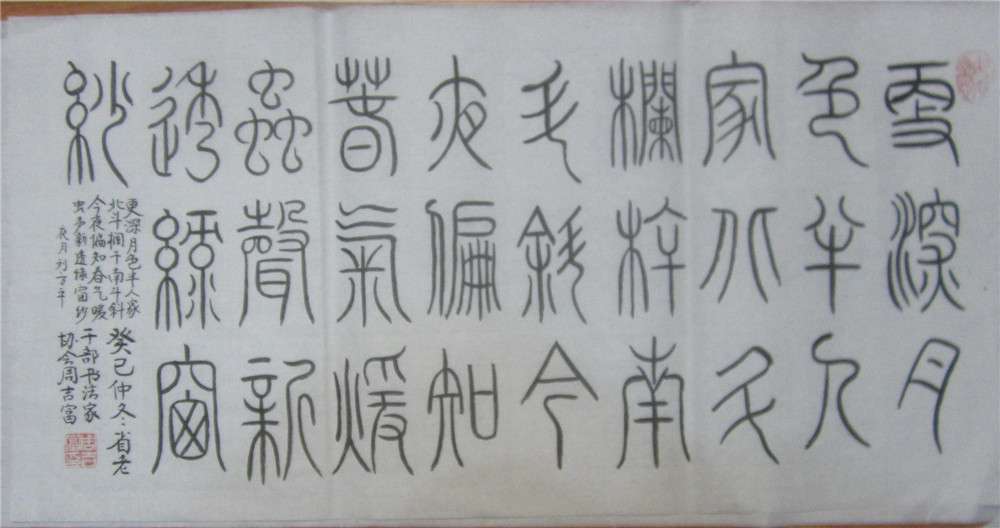 更深月
色半人
家北斗
欄梓南
斗斜今
夜偏知
春氣暖
蟲聲新
透綠窗
紗
更深月色半人家
北斗栏干南斗斜
今夜偏知春气暖
虫声新透绿窗纱
夜月刘方平
癸巳仲冬省老
干部书法家
协会周吉富